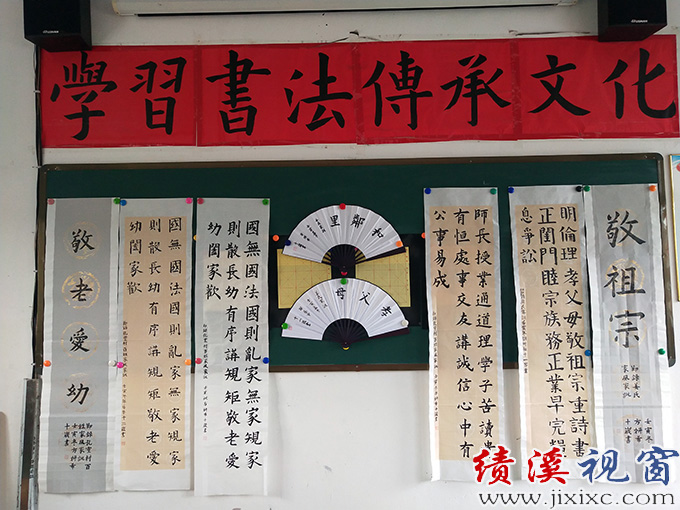 學習書法傳承文化
敬祖宗
壬寅冬
十歲書
明倫理孝父母敬祖宗重詩書
正閨門睦宗族務正業早完糧
息爭訟
師長授業通道理學子苦讀
有恒處事交友講誠信心中有
公事易成
和鄰里
孝父母
國無國法國則亂家無家規家
則散長幼有序講規矩敬老愛
幼闔家歡
國無國法國則亂家無家規家
則散長幼有序講規矩敬老愛
幼闔家歡
敬老愛幼
十歲書
绩溪视窗
www.jixixc.com